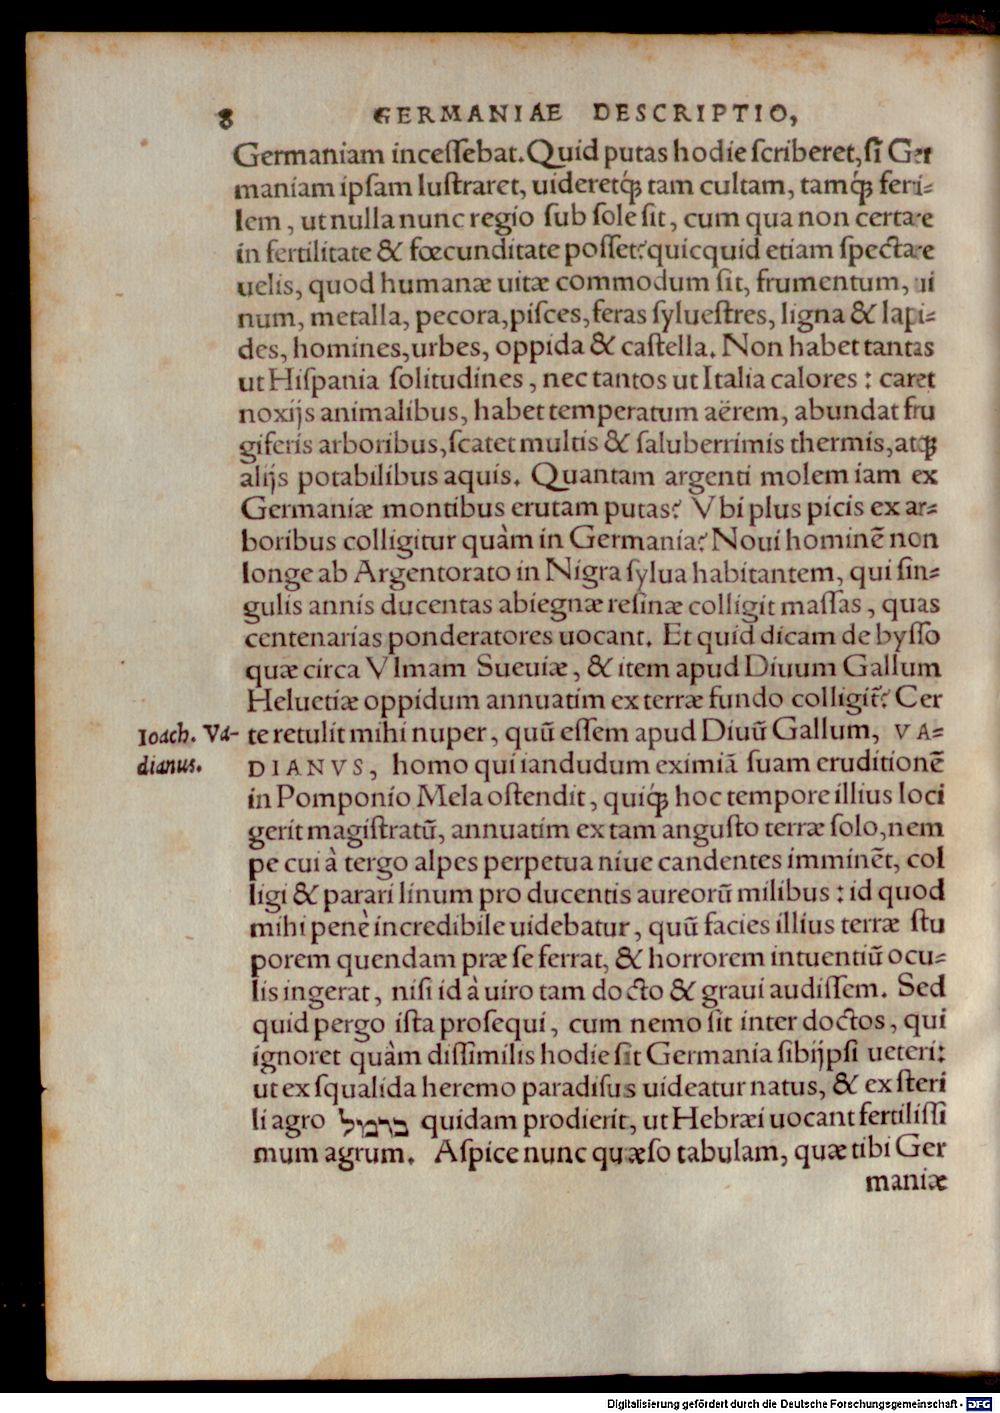 8 GERMANIAE DESCRIPTIO,
Germaniam inceſſebat. Quid putas hodie ſcriberet, ſi Ger
maniam ipſam luſtraret, uideretq́ꝫ tam cultam, tamq́ꝫ ferti⸗
lem, ut nulla nunc regio ſub ſole ſit, cum qua non certare
in fertilitate & fœcunditate poſſet? quicquid etiam ſpectare
uelis, quod humanæ uitæ commodum ſit, frumentum, ui
num, metalla, pecora, piſces, feras ſylueſtres, ligna & lapi⸗
des, homines, urbes, oppida & caſtella. Non habet tantas
ut Hiſpania ſolitudines, nec tantos ut Italia calores: caret
noxijs animalibus, habet temperatum aërem, abundat fru
giferis arboribus, ſcatet multis & ſaluberrimis thermis, atqꝫ
alijs potabilibus aquis. Quantam argenti molem iam ex
Germaniæ montibus erutam putas? Vbi plus picis ex ar⸗
boribus colligitur quàm in Germania? Noui hominẽ non
longe ab Argentorato in Nigra ſylua habitantem, qui ſin⸗
gulis annis ducentas abiegnæ reſinæ colligit maſſas, quas
centenarias ponderatores uocant. Et quid dicam de byſſo
quæ circa Vlmam Sueuiæ, & item apud Diuum Gallum
Heluetiæ oppidum annuatim ex terræ fundo colligit᷑? Cer
Ioach. Va-
dianus.
te retulit mihi nuper, quũ eſſem apud Diuũ Gallum, VA⸗
DIANVS, homo qui iandudum eximiã ſuam eruditionẽ
in Pomponio Mela oſtendit, quiq́ꝫ hoc tempore illius loci
gerit magiſtratũ, annuatim ex tam anguſto terræ ſolo, nem
pe cui à tergo alpes perpetua niue candentes imminẽt, col
ligi & parari linum pro ducentis aureorũ milibus: id quod
mihi penè incredibile uidebatur, quũ facies illius terræ ſtu
porem quendam præ ſe ferrat, & horrorem intuentiũ ocu⸗
lis ingerat, niſi id à uiro tam docto & graui audiſſem. Sed
quid pergo iſta proſequi, cum nemo ſit inter doctos, qui
ignoret quàm diſſimilis hodie ſit Germania ſibijpſi ueteri:
ut ex ſqualida heremo paradiſus uideatur natus, & ex ſteri
li agro כרמול quidam prodierit, ut Hebræi uocant fertiliſſi
mum agrum. Aſpice nunc quæſo tabulam, quæ tibi Ger
maniæ
Digitalisierung gefördert durch die Deutsche Forschungsgemeinschaft - DFG